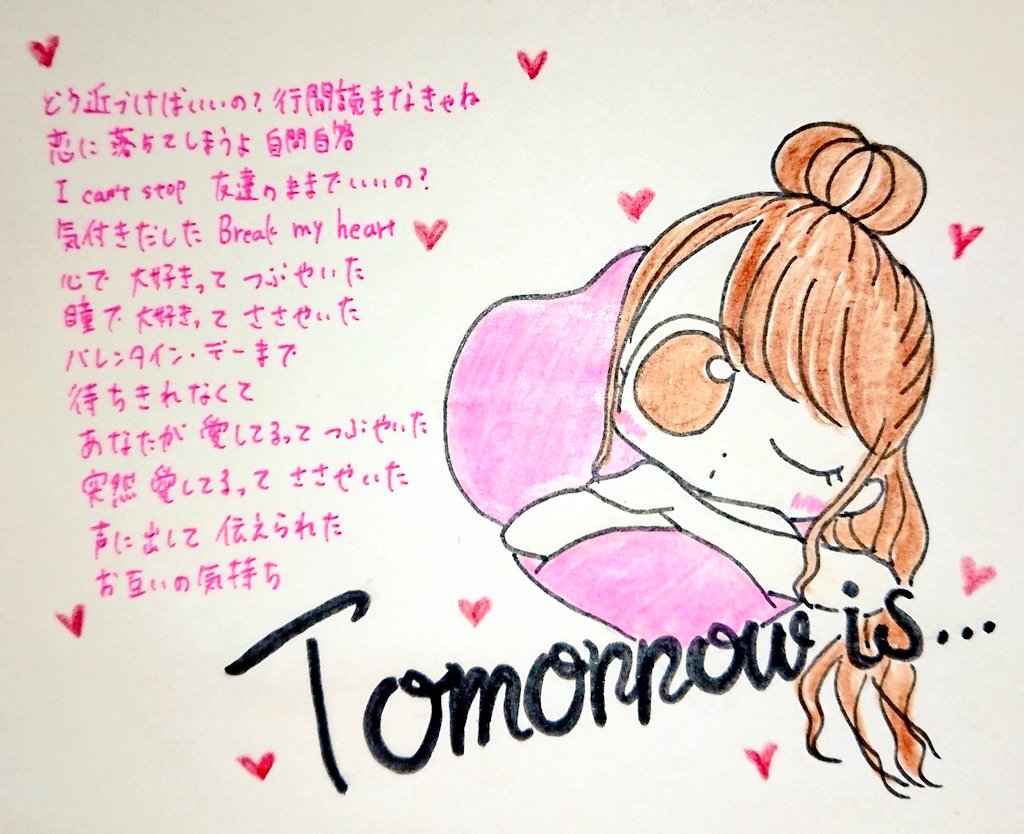 どう近づけばいいの？行間読まなきゃね
恋に落ちてしまうよ 自問自答
I can't stop 友達のままでいいの？
気付きだした Break my heart
心で 大好きって つぶやいた
瞳で 大好きって ささやいた
バレンタイン・デーまで
待ちきれなくて
あなたが 愛してるって つぶやいた
突然 愛してるって ささやいた
声に出して 伝えられた
お互いの気持ち
Tomorrow is...